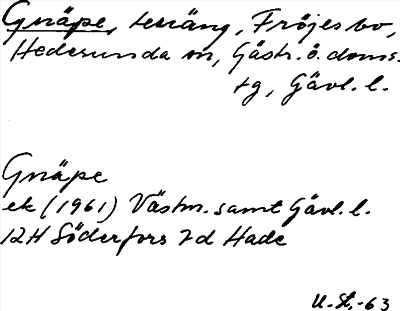 Gnäpe, teräng, Fröjesbo,
Hedesunda sn, Gästr. ö. doms.
tg, Gävl. l.
Gnäpe
ek (1961) Västm. samt Gävl. l.
12H Söderfors 7d Hade
U. St, -63